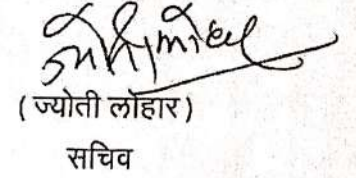 ( ज्योती लोहार )
सचिव